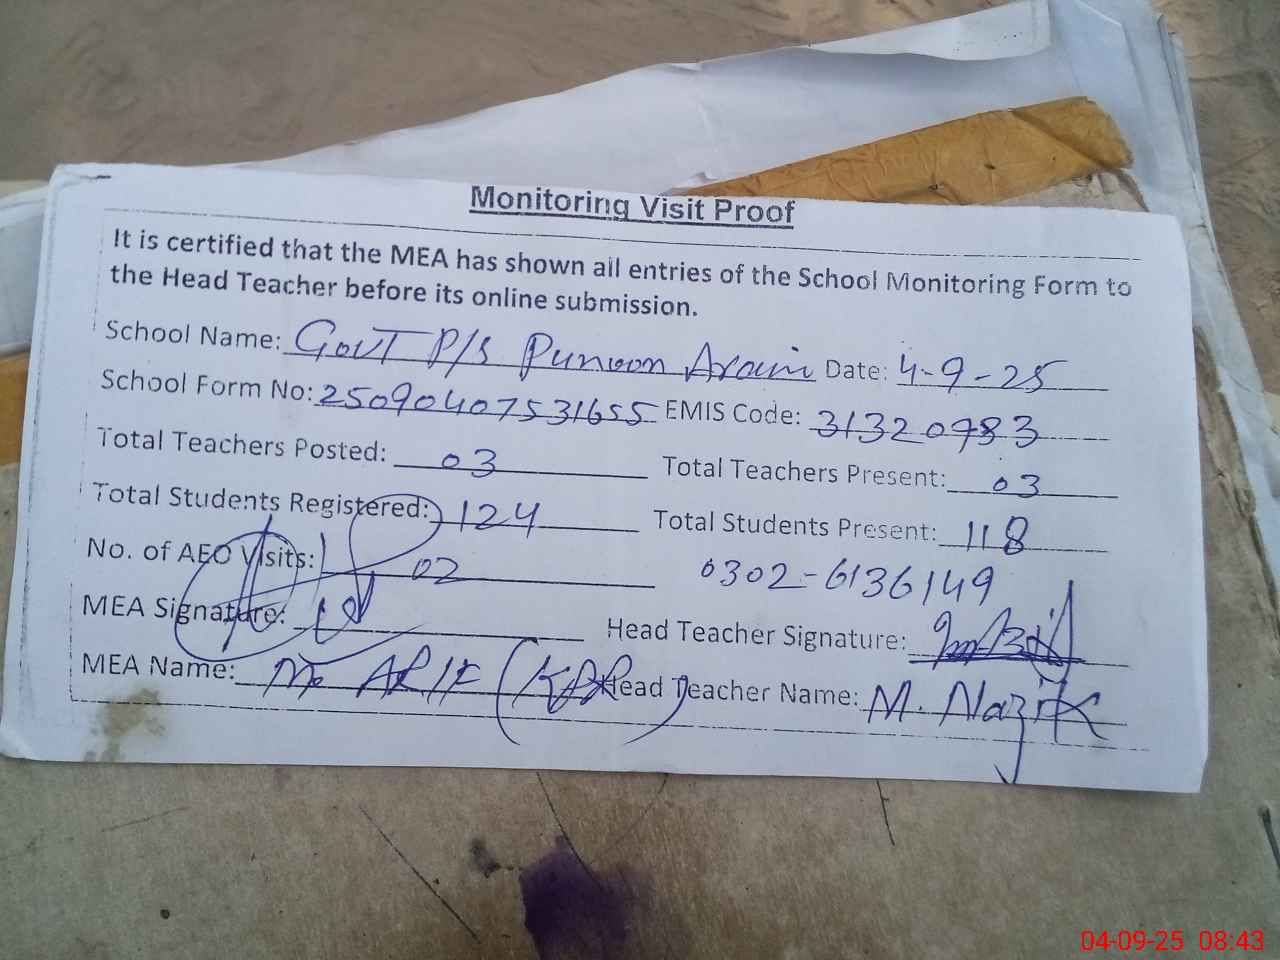 Monitoring Visit Proof
It is certified that the MEA has shown all entries of the School Monitoring Form to
the Head Teacher before its online submission.
School Name: GovT P/S Punoon Arain Date: 4-9-25
School Form No: 25090407531655 EMIS Code: 31320983
Total Teachers Posted: 03 Total Teachers Present: 03
Total Students Registered: 124 Total Students Present: 118
No. of AEO Visits: 02 0302-6136149
MEA Signature: Head Teacher Signature:
MEA Name: M. ARIF Head Teacher Name: M. Nazik
04-09-25 08:43